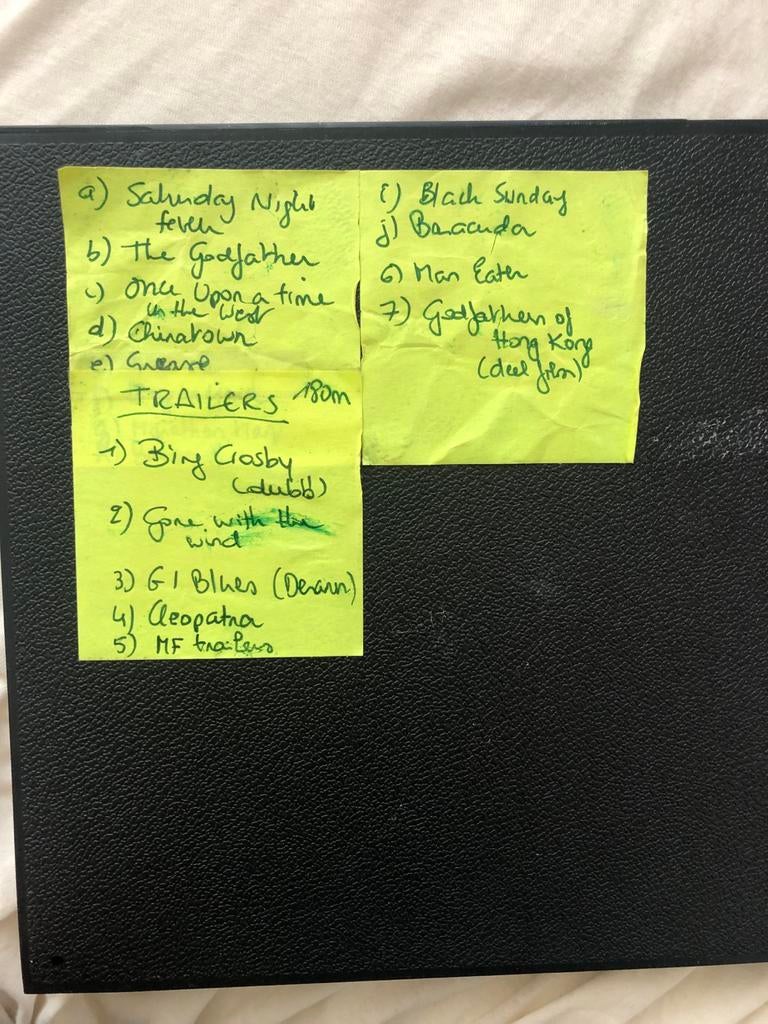 a) Saturday Night
fever
b) The Godfather
c) Once Upon a time
in the West
d) Chinatown
e) Grease
TRAILERS 180m
1) Bing Crosby
(dubb)
2) Gone with the
wind
3) GI Blues (Derann)
4) Cleopatra
5) MF trailers
i) Black Sunday
j) Baracuda
6) Man Eater
7) Godfathers of
Hong Kong
(deel film)